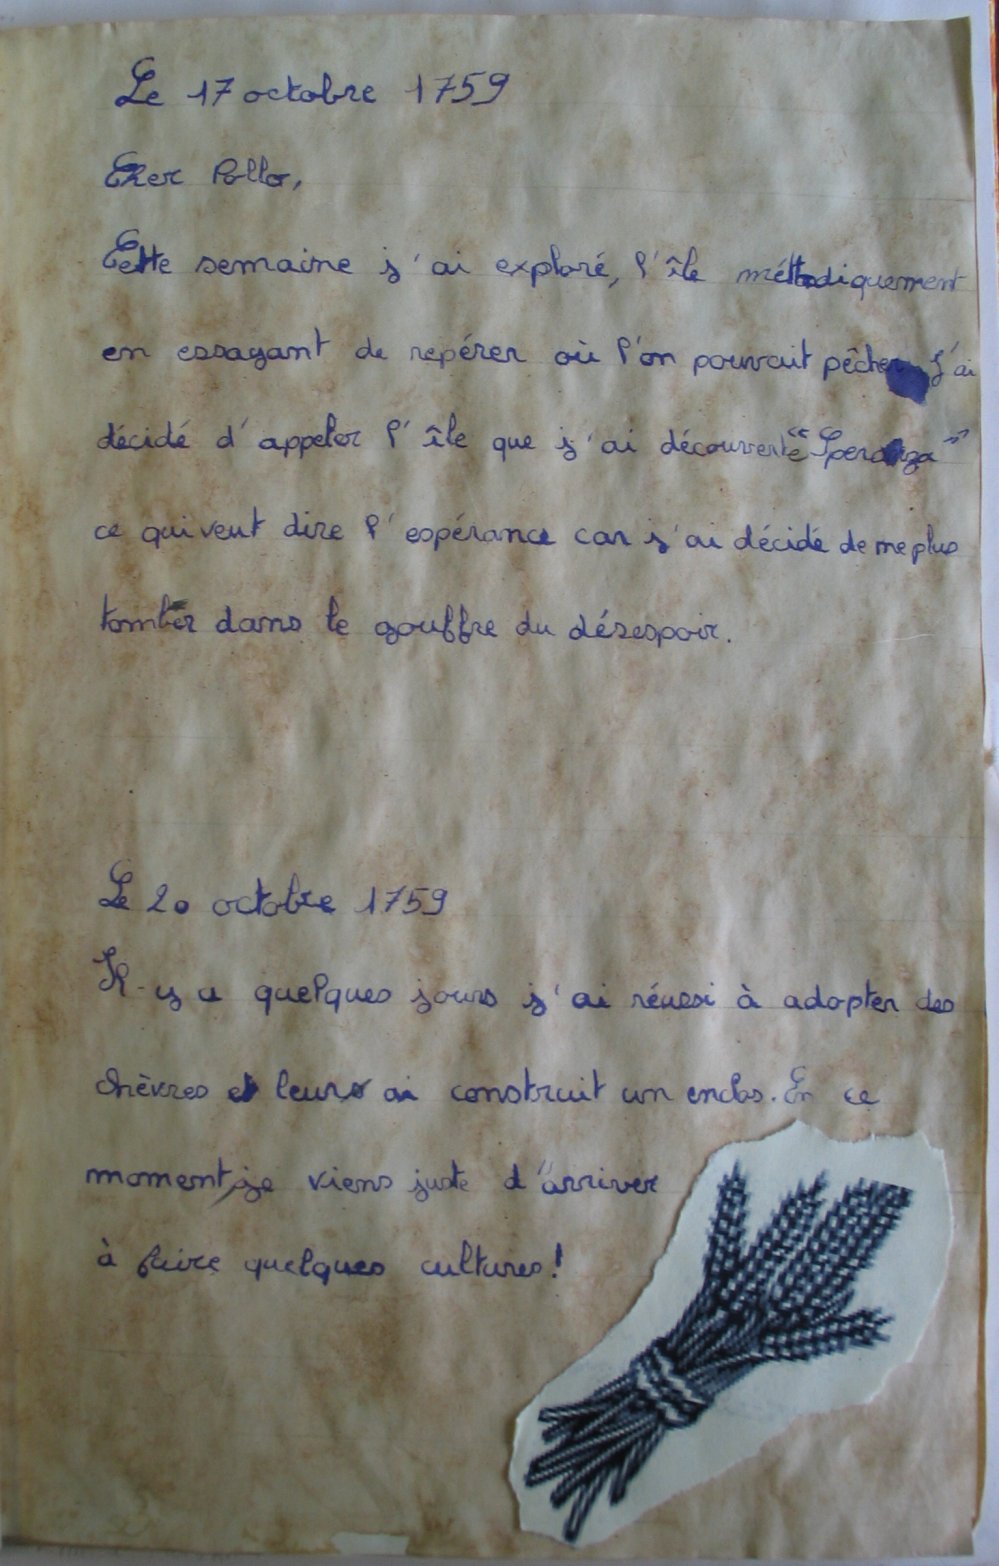 Le 17 octobre 1759
Cher Pollor,
Cette semaine j'ai exploré, l'île méthodiquement
en essayant de repérer où l'on pouvait pêcher j'ai
décidé d'appeler l'île que j'ai découverte "Speranza"
ce qui veut dire l'espérance car j'ai décidé de ne plus
tomber dans le gouffre du désespoir.
Le 20 octobre 1759
Il y a quelques jours j'ai réussi à adopter des
chèvres et leurs ai construit un enclos. En ce
moment, je viens juste d'arriver
à faire quelques cultures!